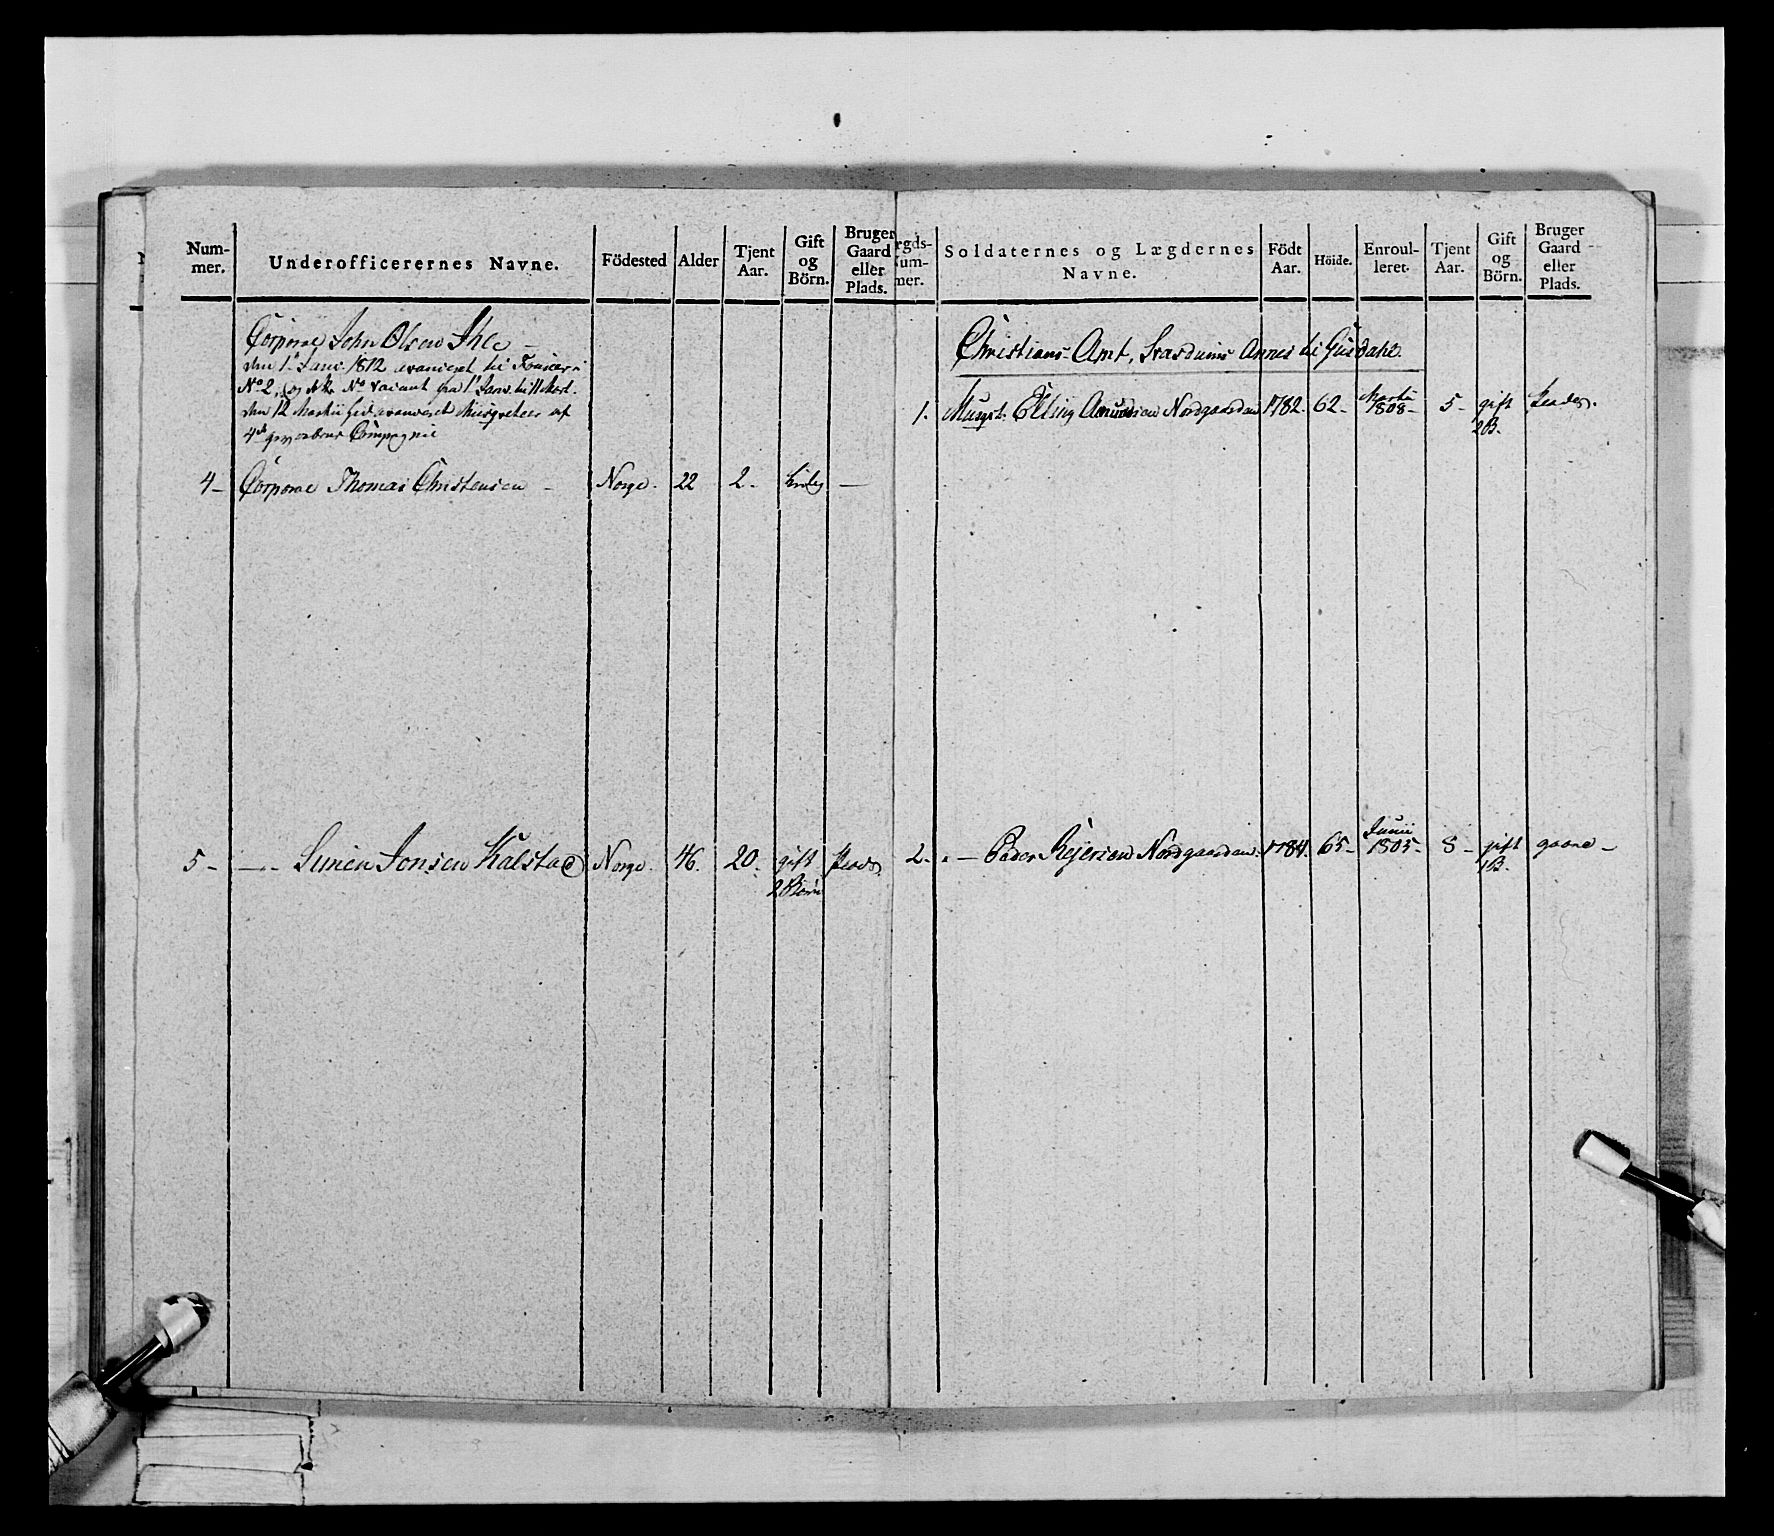 Num-
mer.
Underofficerernes Navne.
Födested
Alder
Tjent
Aar.
Gift
og
Börn.
Bruger
Gaard
eller
Plads.
Corporal John Olsen Ihle -
den 1te Janv. 1812 avanceret til
No 2, og No vacant fra 1te Janv. til 11 Mart.
den 12 Martii avanceret af
4de Compagnie
4 - Corporal Thomas Christensen - Norge. 22 2 - ledig -
5 - - Simen Jonsen Kalstad Norge. 46. 20 - gift Plads.
2 Börn
rgds-
Num-
mer.
Soldaternes og Lægdernes
Navne.
Födt
Aar.
Höide.
Enroul-
leret.
Tjent
Aar.
Gift
og
Börn.
Bruger
Gaard
eller
Plads.
Christians Amt, Annex til Gusdahl.
1. Musqt. Elling Amundsen Nordgaarden 1782. 62 - Martii 1808 - 5 - gift Plads.
2 B.
2. - Peder Rejersen Nordgaarden. 1784. 65 - Junii 1805 - 8 - gift gaard -
1 B.